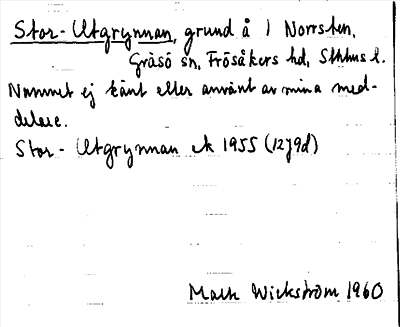 Stor-Utgrynnan, grund å 1 Norrsten,
Gräsö sn, Frösåkers hd, Sthlms l.
Namnet ej känt eller använt av mina med-
delare.
Stor-Utgrynnan ek 1955 (12J9d)
Mats Wickström 1960